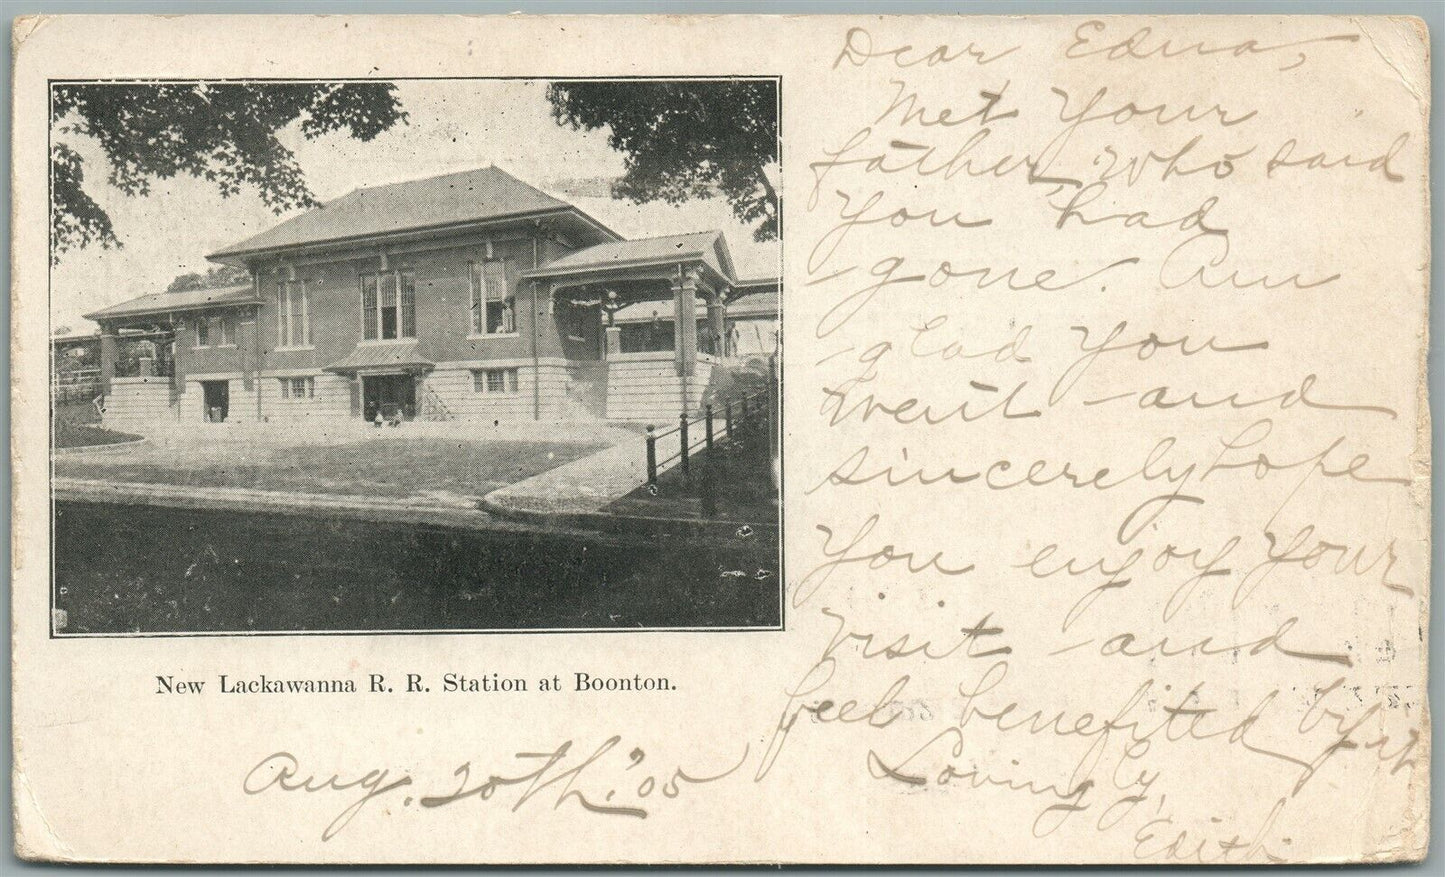 Dear Edna,
Met Your
father, who said
You had
gone. Am
glad You
went and
sincerely hope
You enjoy Your
Visit and
feel benefited by it
Lovingly,
Edith
New Lackawanna R. R. Station at Boonton.
Aug. 20th, '05